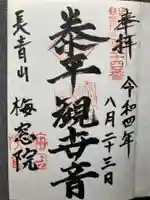 奉拝
令和四年
八月二十三日
泰平観世音
長青山
梅窓院